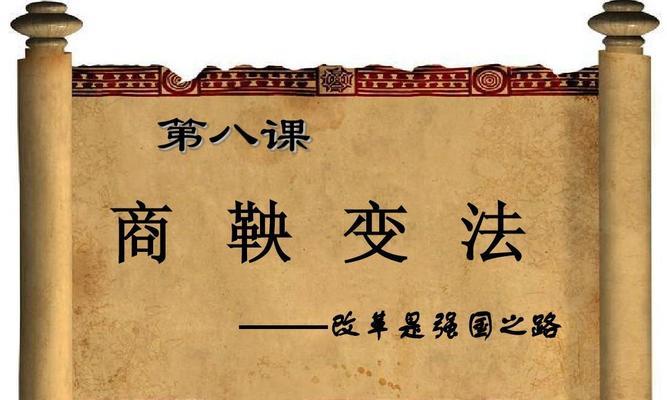 第八课
商鞅变法
——改革是强国之路